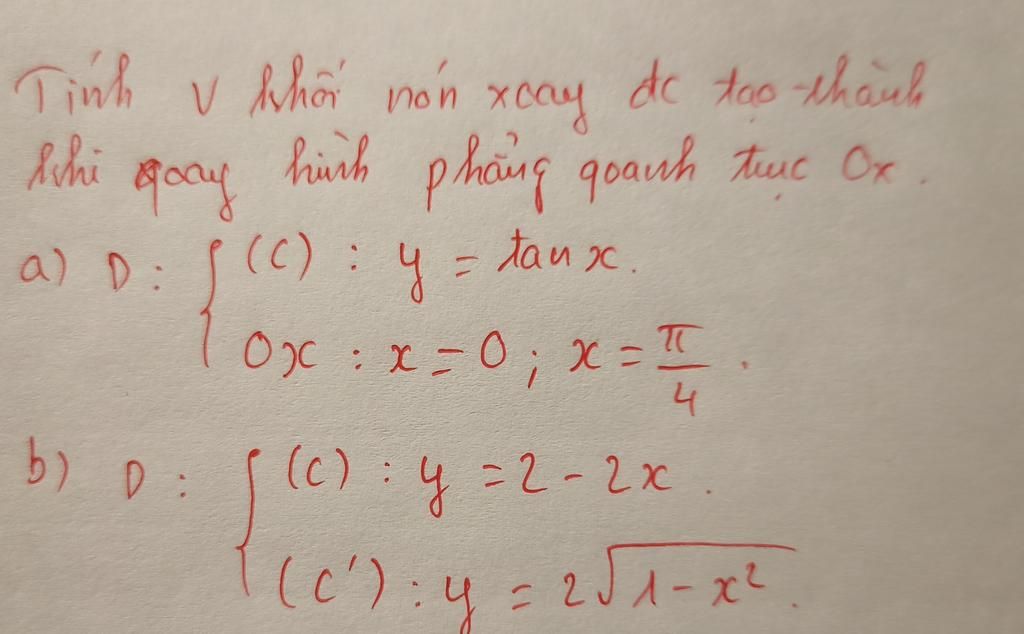 Tính V khối nón xoay đc tạo thành
khi quay hình phẳng quanh trục Ox.
a) D: { (C) : y = tan x.
Ox : x = 0 ; x = π/4.
b) D : { (C) : y = 2 - 2x.
(C') : y = 2√(1 - x²).